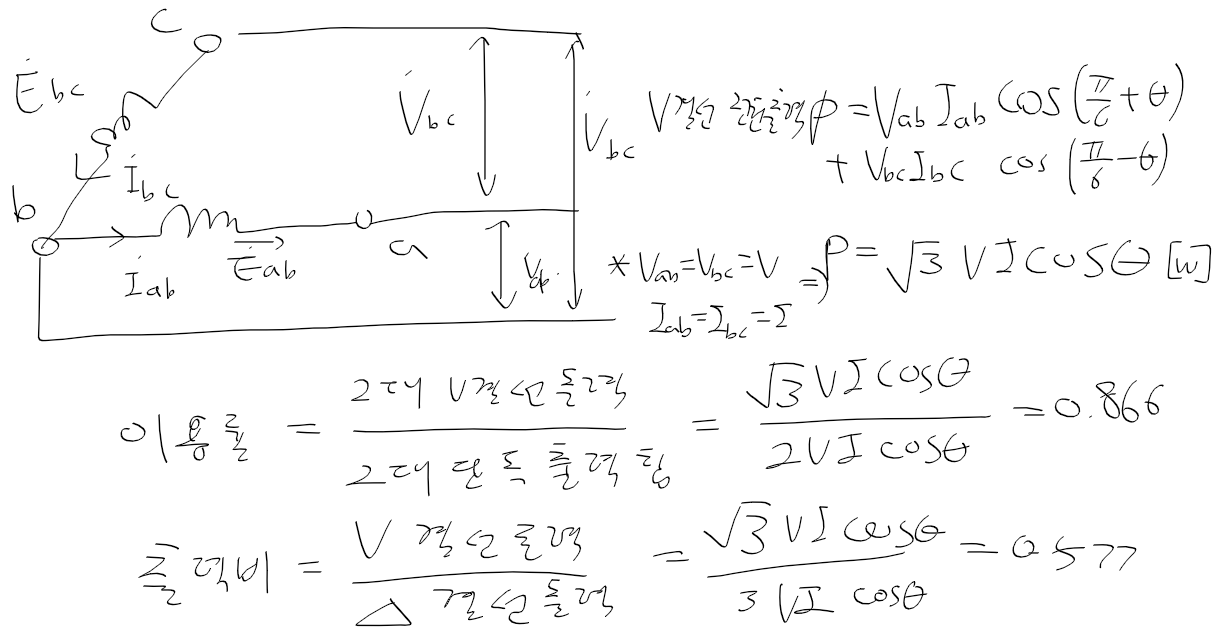 c
Ė bc
V̇ bc
V̇ bc
İ bc
b
İ ab
Ė ab
a
V ab
V결선 출력 P = Vab Iab cos (π/6 + θ)
+ Vbc Ibc cos (π/6 - θ)
* Vab = Vbc = V ⇒ P = √3 V I cos θ [W]
Iab = Ibc = I
이용률 = 2대 V결선 출력 / 2대 단독 출력 합 = √3 V I cos θ / 2 V I cos θ = 0.866
출력비 = V 결선 출력 / △ 결선 출력 = √3 V I cos θ / 3 V I cos θ = 0.577